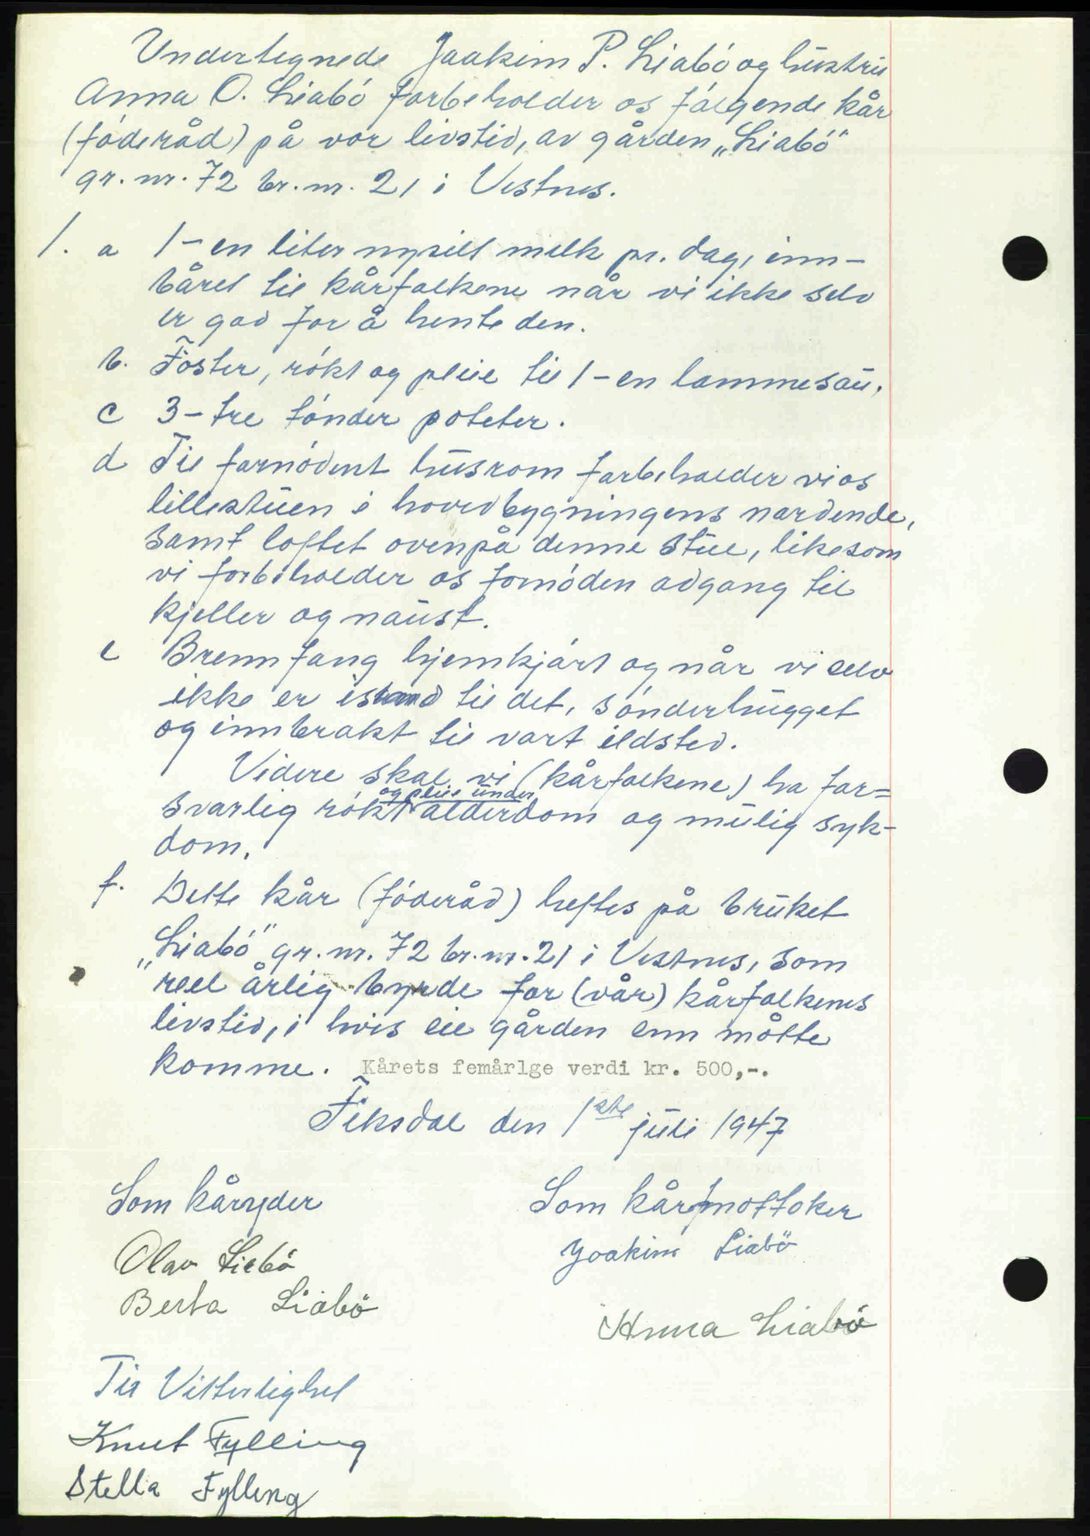 Undertegnede Joakim P. Liabö og hustru
Anna O. Liabö forbeholder os fölgende kår
(föderåd) på vor livstid, av gården „Liabö"
gr. nr. 72 br. nr. 21 i Vestnes.
1. a 1 - en liter nysilt melk pr. dag, inn-
båret til kårfolkene når vi ikke selv
er god for å hente den.
b. Foster, rökt og pleie til 1 - en lammesau.
c 3 - tre tönder poteter.
d Til fornödent husrom forbeholder vi os
lillestuen i hovedbygningens nordende,
samt loftet ovenpå denne stue, likesom
vi forbeholder os fornöden adgang til
kjeller og naust.
e Brennfang hjemkjört og når vi selv
ikke er istand til det, sönderhugget
og innbrakt til vort ildsted.
Videre skal vi (kårfolkene) ha for=
og pleie under
svarlig rökt alderdom og mulig syk-
dom.
f. Dette kår (föderåd) heftes på bruket
„Liabö" gr. nr. 72 br. nr. 21 i Vestnes, som
reel årlig byrde for (vår) kårfolkenes
livstid, i hvis eie gården enn måtte
komme. Kårets femårlge verdi kr. 500,-.
Fiksdal den 1ste juli 1947
Som kåryder
Som kårmottaker
Olav Liabö
Joakim Liabö
Berta Liabö
Anna Liabö
Til Vitterlighet
Knut Fylling
Stella Fylling